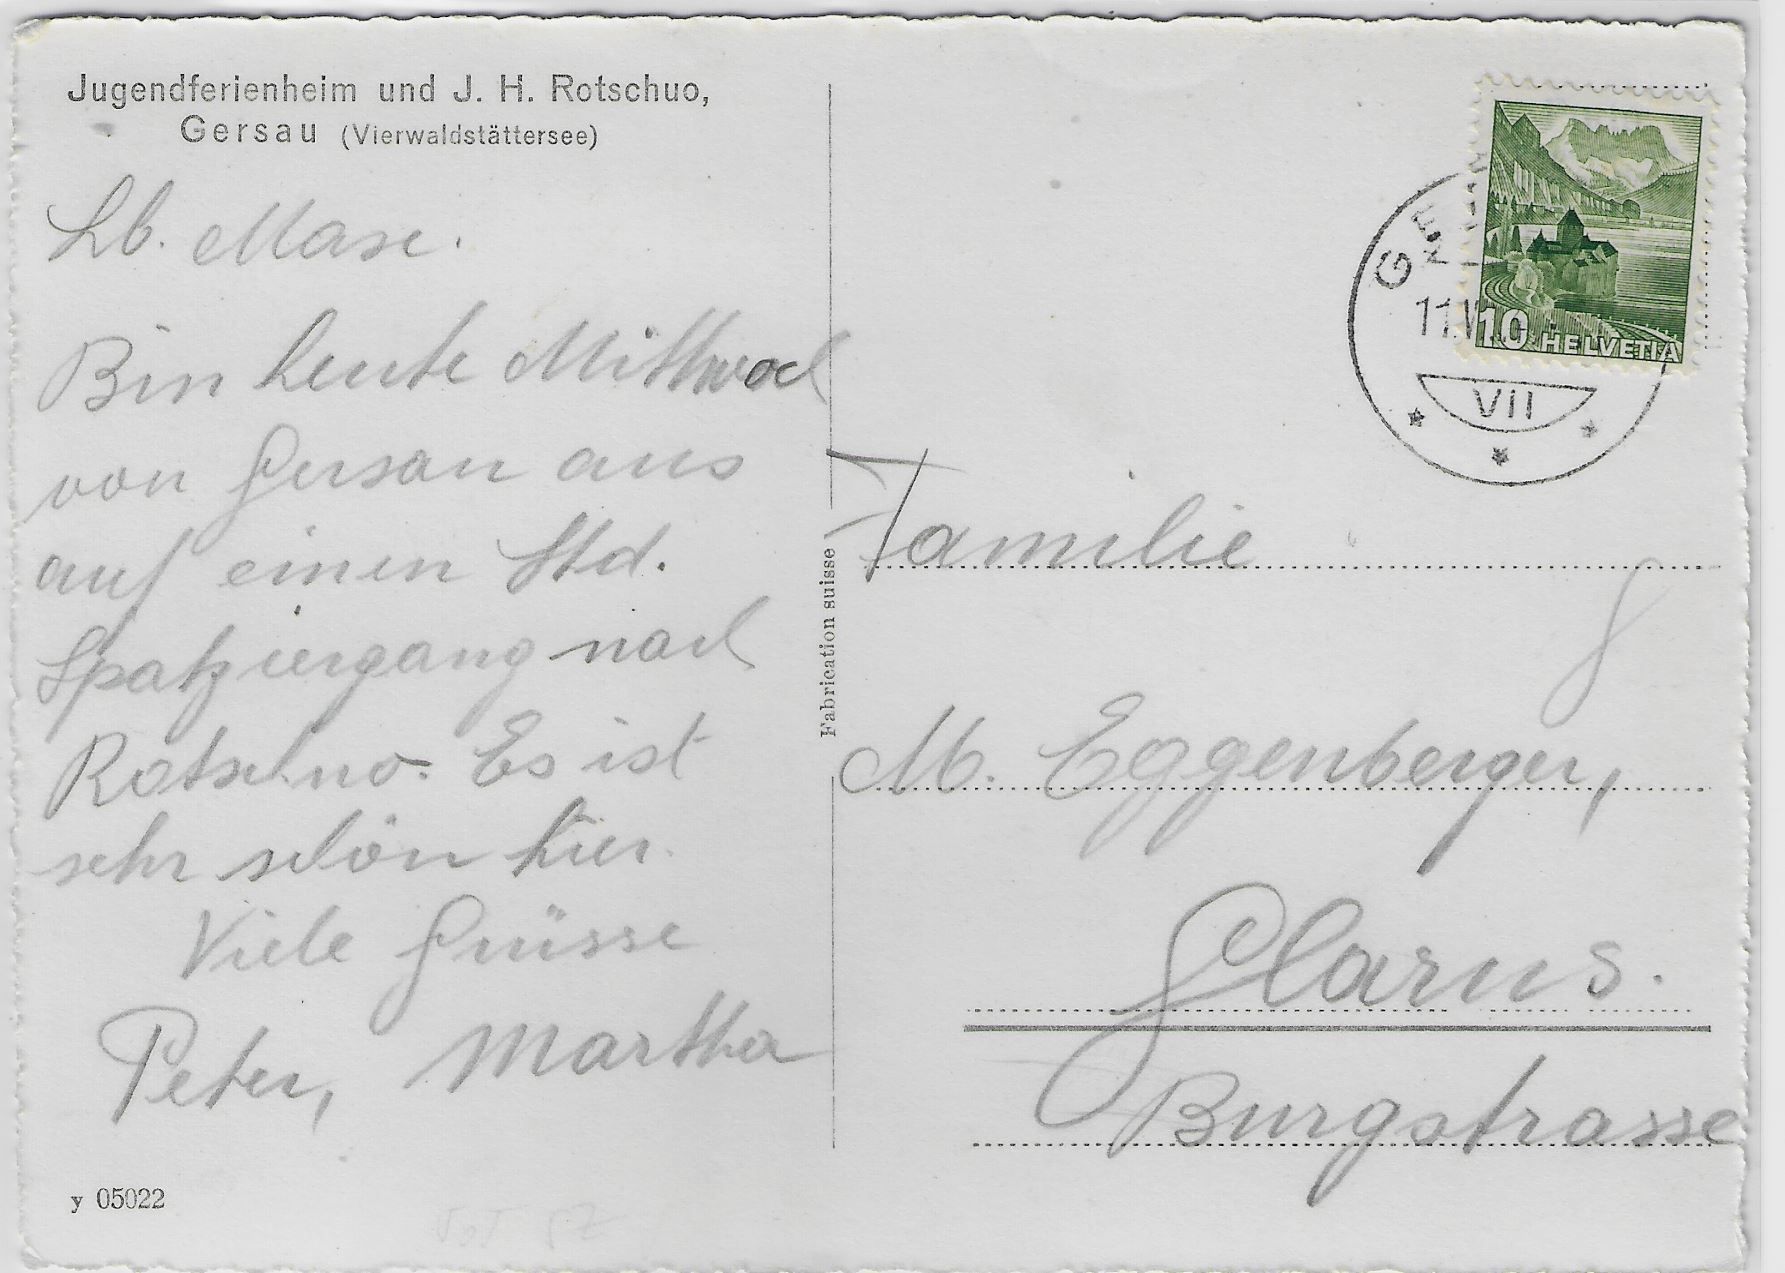 Jugendferienheim und J. H. Rotschuo,
Gersau (Vierwaldstättersee)
Lb. Mase.
Bin heute Mittwoch
von Gersau aus
auf einen Std.
Spatziergang nach
Rotschuo. Es ist
sehr schön hier.
Viele Grüsse
Peter, Martha
y 05022
Fabrication suisse
10 HELVETIA
VII
Familie
M. Eggenberger,
Glarus.
Burgstrasse